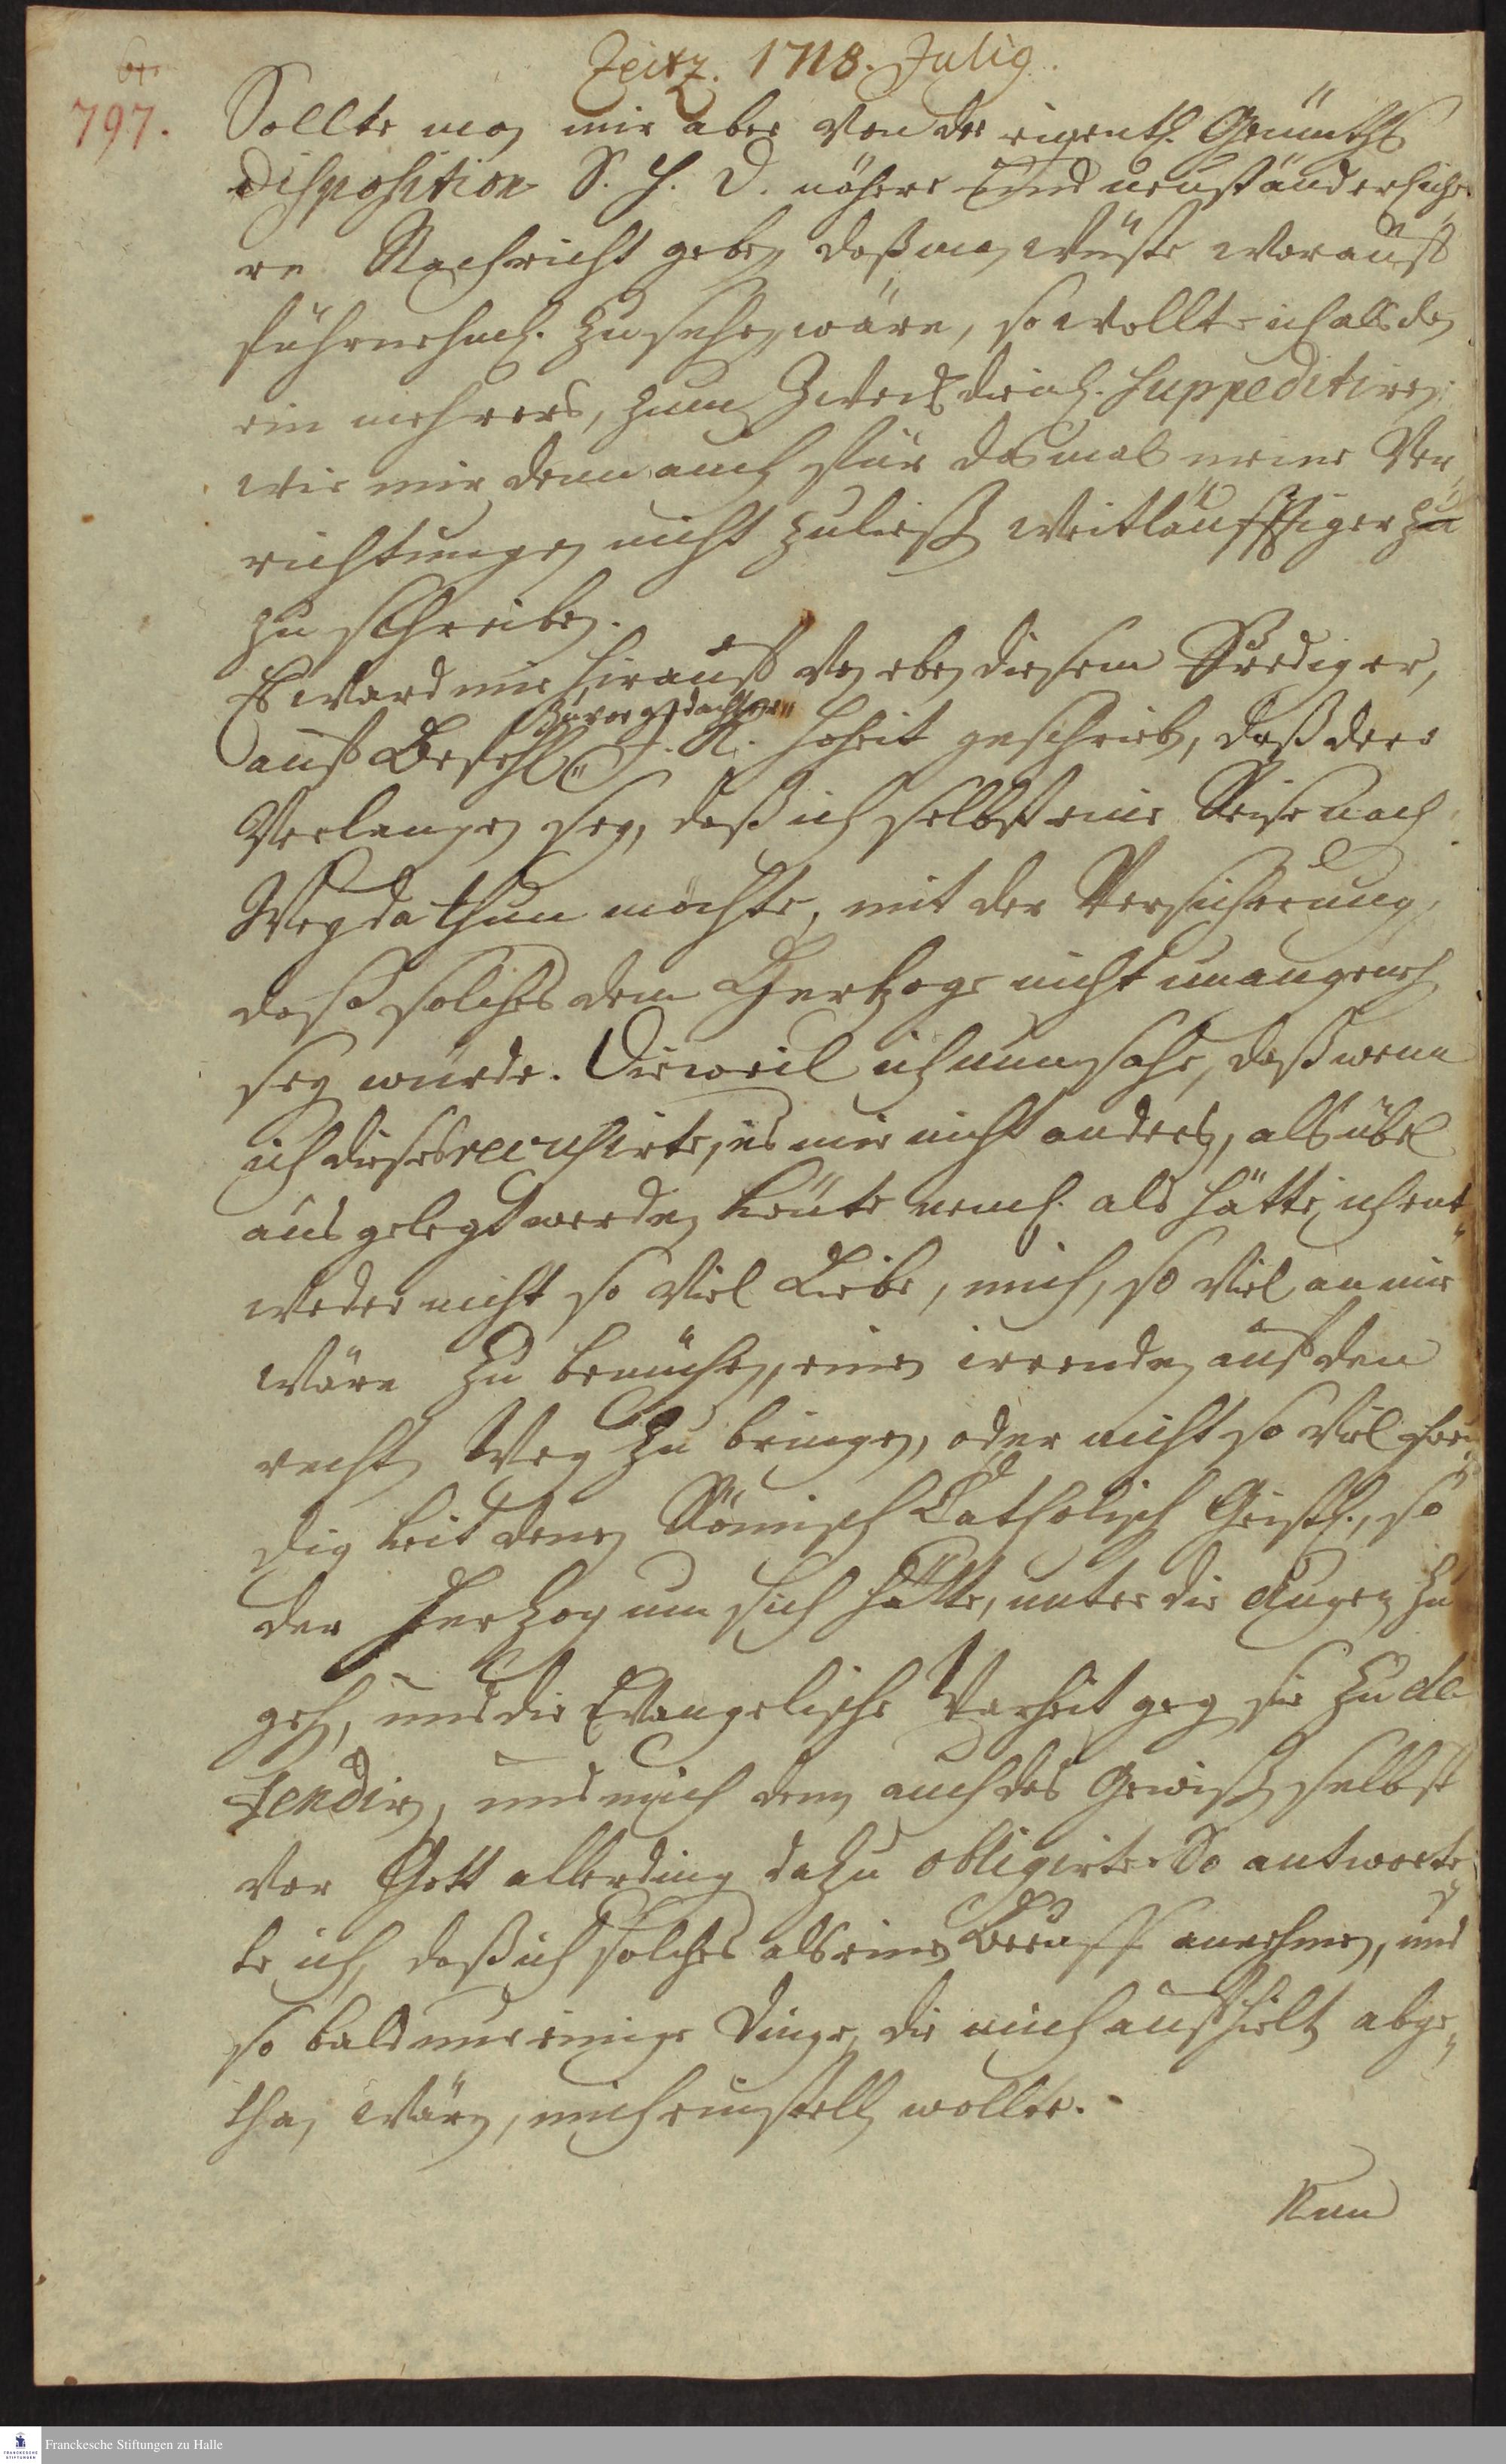 Zeitz. 1718. Julig.
61.
797.
Sollte man mir aber von der eigentl. Gemüths
Disposition S. H. D. nähere und umständliche-
re Nachricht geben, daß man wüste worauff
führnehml. zu sehen wäre, so wollte ich als den
ein mehrers, zum Zweck dienl. suppeditiren;
wie mir denn auch für dasmal meine Ver-
richtungen nicht zuließen weitläufftiger zu
zu schreiben.
Es ward mir hierauff von eben diesem Prediger,
auß Befehl vorgedachter J. K. Hoheit geschrieben, daß dero
Verlangen sey, daß ich selbst eine Reise nach
Weyda thun möchte, mit der Versicherung,
daß solches dem Hertzoge nicht unangenehm
seyn würde. Dieweil ich nun sahe, daß wenn
ich dieses recusirte, es mir nicht anders, als übel
ausgelegt werden könte neml. als hätte ich ent-
weder nicht so viel Liebe, mich, so viel an mir
wäre zu bemühen, einen irrenden auff den
rechten Weg zu bringen, oder nicht so viel freu-
digkeit denen Römisch Catholischen Geistl., so
der Herzog um sich hätte, unter die Augen zu
gehen, und die Evangelische Warheit gegen sie zu de-
fendiren, und mich denn auch das Gewißen selbst
vor Gott allerdings dazu obligirte. So antworte-
te ich, daß ich solches als einen Beruff annehmen, und
so bald nur einige Dinge, die mich auffhielten abge-
than wären, mich einstellen wollte.
Nun
Franckesche Stiftungen zu Halle